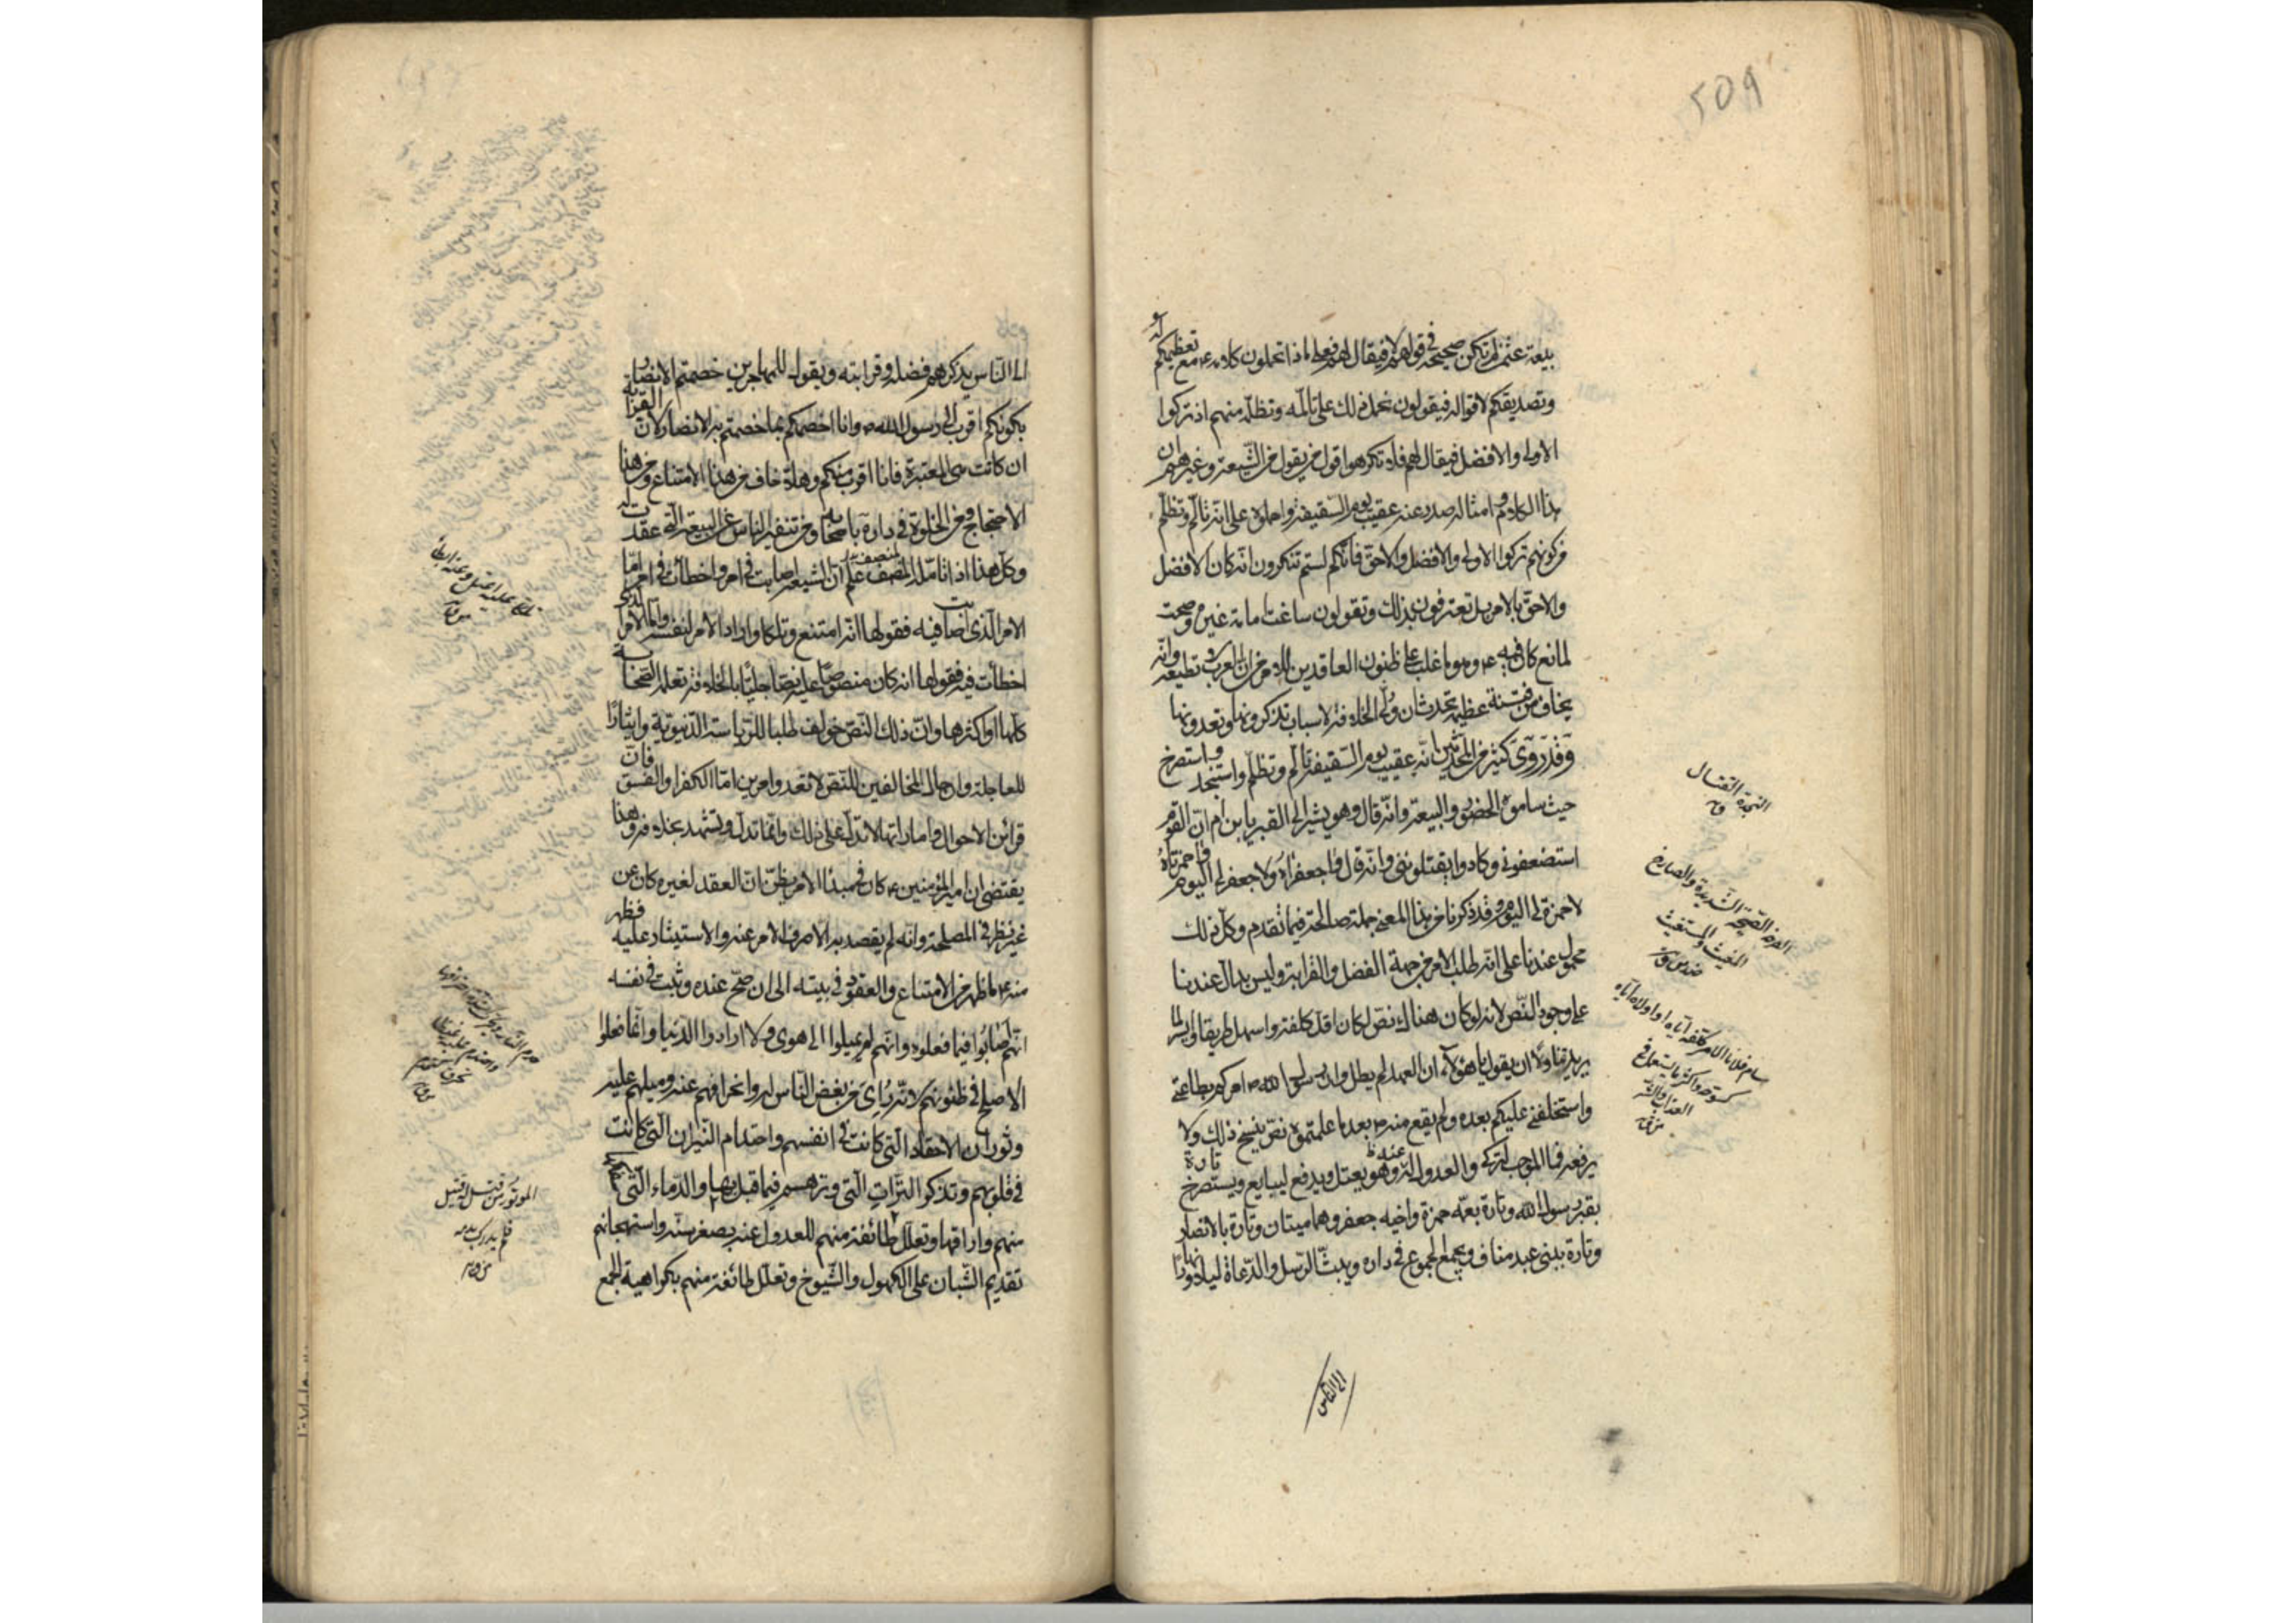 509
بيعة عثمن لم تكن صحيحة في قولهم لا فيقال لهم فعلى ماذا تحملون كلامه ع مع تعظيمكم له و
وتصديقكم لاقواله فيقولون نحمل ذلك على تالمه وتظلمه منهم اذ تركوا
الاولى والافضل فيقال لهم فلا تكرهوا قول من يقول من الشيعة وغيرهم ان
هذا الكلام وامثاله صدر عنه عقيب يوم السقيفة واحملوه على انه تالم وتظلم
من كونهم تركوا الاولى والافضل والاحق فانكم لستم تنكرون انه كان الافضل
والاحق بالامر بل تعترفون بذلك وتقولون ساغت امامة غيره وصحت
لمانع كان فيه ع وهو ما غلب على ظنون العاقدين للامر من ان العرب لا تطيعه وانه
يخاف من فتنة عظيمة تحدث ان ولى الخلافة لاسباب تذكرونها وتعدونها
وقد روى كثير من المحدثين انه عقيب يوم السقيفة تالم وتظلم واستنجد واستصرخ
حيث ساموه الحضور والبيعة وانه قال وهو يشير الى القبر يا بن ام ان القوم
استضعفوني وكادوا يقتلونني وانه قال واجعفراه ولا جعفر لي اليوم واحمزتاه
لا حمزة لي اليوم وقد ذكرنا من هذا المعنى جملة صالحة فيما تقدم وكل ذلك
محمول عندنا على انه طلب الامر من جهة الفضل والقرابة وليس بدال عندنا
على وجود النص لانه لو كان هناك نص لكان اقل كلفة واسهل طريقا وايسر لما
يريد تناولا ان يقول يا هؤلاء ان العهد لم يطل وان رسول الله ص امركم بطاعتي
واستخلفني عليكم بعده ولم يقع منه ص بعد ما علمتموه نص ينسخ ذلك ولا
يرفعه فما الموجب لتركي والعدول عني وهو يعتل ويدفع ليبايع ويستصرخ تارة
بقبر رسول الله وتارة بعمه حمزة واخيه جعفر وهما ميتان وتارة بالانصار
وتارة ببني عبد مناف ويجمع الجموع في داره ويبث الرسل والدعاة ليلا ونهارا
الى الناس
النجدة القتال
ق
الصرخة الصيحة الشديدة والصارخ
المغيث والمستغيث
ضد من ق
سام فلانا الامر كلفه اياه او اولاه اياه
كسومه واكثر ما يستعمل في
العذاب والشر
من ق
الى الناس يذكرهم فضله وقرابته ويقول للمهاجرين خصمتم الانصار
بكونكم اقرب الى رسول الله ص وانا اخصمكم بما خصمتم به الانصار لان القرابة
ان كانت هى المعتبرة فانا اقرب منكم وهلا خاف من هذا الامتناع ومن هذا
الاحتجاج ومن الخلوة في داره باصحابه ومن تنفير الناس عن البيعة التي عقدت
وكل هذا اذا تامله المنصف علم ان الشيعة اصابت في امر واخطات في امر اما
الامر الذي اصابت فيه فقولها انه امتنع وتلكا واراد الامر لنفسه واما الامر الذي
اخطات فيه فقولها انه كان منصوصا عليه نصا جليا بالخلافة تعلمه الصحابة
كلها او اكثرها وان ذلك النص خولف طلبا للرياسة الدنيوية وايثارا
للعاجلة وان حال المخالفين للنص لا تعدو امرين اما الكفر او الفسق فان
قرائن الاحوال واماراتها لا تدل على ذلك وانما تدل وتشهد بخلافه وهذا
يقتضي ان امير المؤمنين ع كان في مبدا الامر يظن ان العقد لغيره كان عن
غير نظر في المصلحة وانه لم يقصد به الا صرف الامر عنه والاستيثار عليه فظهر
منه ع ما ظهر من الامتناع والعقود في بيته الى ان صح عنده وثبت في نفسه
انهم اصابوا فيما فعلوه وانهم لم يميلوا الى هوى ولا ارادوا الدنيا وانما فعلوا
الاصلح في ظنونهم لانه راى من بغض الناس له وانحرافهم عنه وميلهم عليه
وثوران الاحقاد التي كانت في انفسهم واحتدام النيران التي كانت
في قلوبهم وتذكروا الترات التي وترهم فيما قبل بها والدماء التي سفكها
منهم واراقها وتعلل طائفة منهم للعدول عنه بصغر سنه واستهجانهم
تقديم الشبان على الكهول والشيوخ وتعلل طائفة منهم بكراهية الجمع
تلكا عليه اعتل وعنه ابطا
من ق
من ق
الموتور من قتل له قتيل
فلم يدرك بدمه
من ق